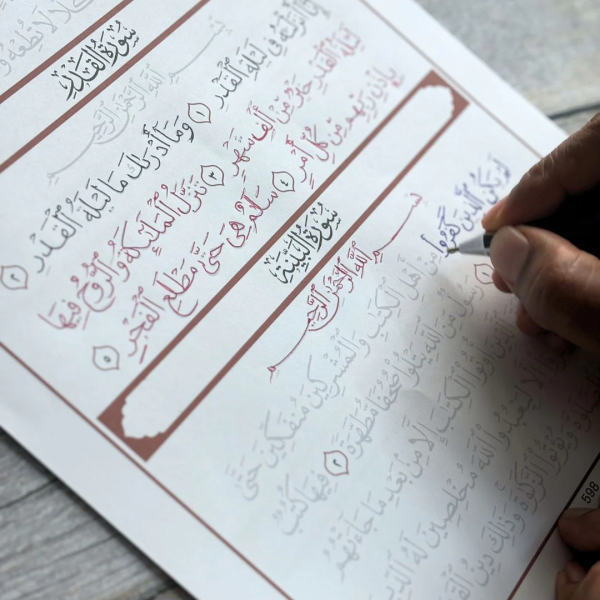 كَلَّا لَا تُطِعْهُ
سُورَةُ القَدْرِ
بِسْمِ ٱللَّهِ ٱلرَّحْمَٰنِ ٱلرَّحِيمِ
إِنَّآ أَنزَلْنَٰهُ فِى لَيْلَةِ ٱلْقَدْرِ ١ وَمَآ أَدْرَىٰكَ مَا لَيْلَةُ ٱلْقَدْرِ ٢
لَيْلَةُ ٱلْقَدْرِ خَيْرٌ مِّنْ أَلْفِ شَهْرٍ ٣ تَنَزَّلُ ٱلْمَلَٰٓئِكَةُ وَٱلرُّوحُ فِيهَا
بِإِذْنِ رَبِّهِم مِّن كُلِّ أَمْرٍ ٤ سَلَٰمٌ هِىَ حَتَّىٰ مَطْلَعِ ٱلْفَجْرِ ٥
سُورَةُ البَيِّنَةِ
بِسْمِ ٱللَّهِ ٱلرَّحْمَٰنِ ٱلرَّحِيمِ
لَمْ يَكُنِ ٱلَّذِينَ كَفَرُوا۟ مِنْ أَهْلِ ٱلْكِتَٰبِ وَٱلْمُشْرِكِينَ مُنفَكِّينَ حَتَّىٰ
١ رَسُولٌ مِّنَ ٱللَّهِ يَتْلُوا۟ صُحُفًا مُّطَهَّرَةً ٢ فِيهَا كُتُبٌ
ٱلَّذِينَ أُوتُوا۟ ٱلْكِتَٰبَ إِلَّا مِنۢ بَعْدِ مَا جَآءَتْهُمُ
إِلَّا لِيَعْبُدُوا۟ ٱللَّهَ مُخْلِصِينَ لَهُ ٱلدِّينَ
وَيُؤْتُوا۟ ٱلزَّكَوٰةَ وَذَٰلِكَ دِينُ
598